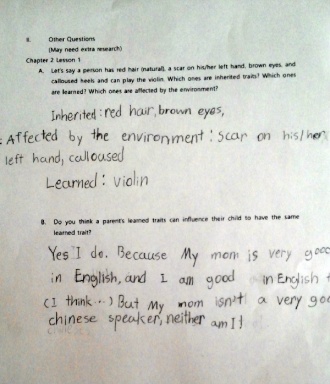 II. Other Questions
(May need extra research)
Chapter 2 Lesson 1
A. Let's say a person has red hair (natural), a scar on his/her left hand, brown eyes, and
calloused heels and can play the violin. Which ones are inherited traits? Which ones
are learned? Which ones are affected by the environment?
Inherited: red hair, brown eyes,
: Affected by the environment: scar on his/her
left hand, calloused
Learned: violin
B. Do you think a parent's learned traits can influence their child to have the same
learned trait?
Yes I do. Because My mom is very good
in English, and I am good in English t
(I think...) But My mom isn't a very goo
chinese speaker, neither am I!